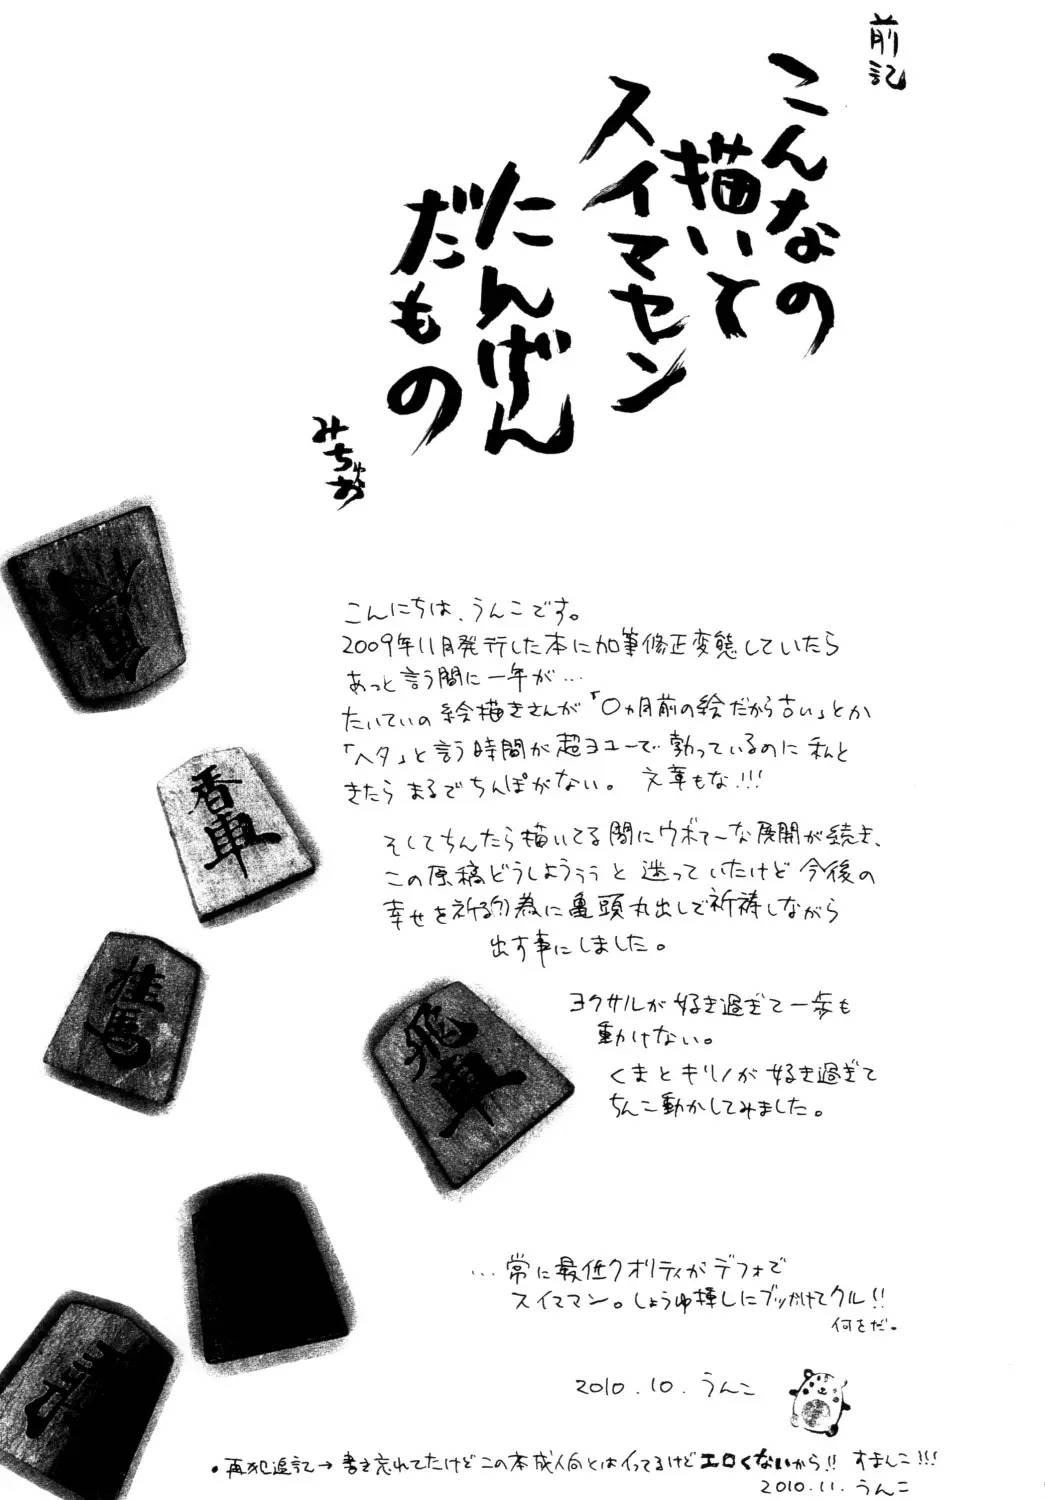 前記
こんなの
描いて
スイマセン
にんげん
だもの
みちゅお
香車
桂馬
飛車
こんにちは、うんこです。
2009年11月発行した本に加筆修正変態していたら
あっと言う間に一年が…
たいていの絵描きさんが「○ヵ月前の絵だから古い」とか
「ヘタ」と言う時間が超ヨユーで勃っているのに私と
きたらまるでちんぽがない。文章もな!!!
そしてちんたら描いてる間にウボァーな展開が続き、
この原稿どうしようぅぅと迷っていたけど今後の
幸せを祈る(?)為に亀頭丸出しで祈祷しながら
出す事にしました。
ヨクサルが好き過ぎて一歩も
動けない。
くまとキリノが好き過ぎて
ちんこ動かしてみました。
…常に最低クオリティがデフォで
スイママン。しょうゆ挿しにブッかけてクル!!
何をだ。
2010.10.うんこ
・再犯追記→書き忘れてたけどこの本成人向とはイってるけどエロくないから!! すまんこ!!!
2010.11.うんこ